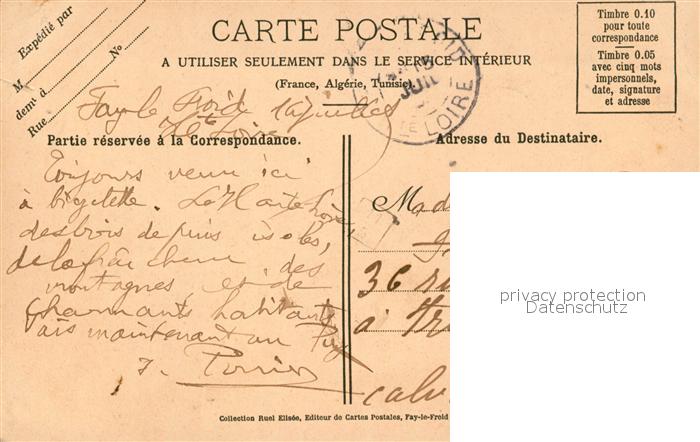 CARTE POSTALE
A UTILISER SEULEMENT DANS LE SERVICE INTÉRIEUR
(France, Algérie, Tunisie)
Expédié par
M
demt à
Rue
No
Timbre 0.10
pour toute
correspondance
Timbre 0.05
avec cinq mots
impersonnels,
date, signature
et adresse
15
JUIL
Hte LOIRE
Fay le Froid 14 juillet
Hte Loire
Partie réservée à la Correspondance.
Adresse du Destinataire.
Toujours venu ici
à bicyclette. La Haute Loire,
des bois de pins isolés,
de la fraîcheur des
montagnes et de
charmants habitants
vais maintenant au Puy
Mad
36 ru
à
calv
privacy protection
Datenschutz
Collection Ruel Elisée, Editeur de Cartes Postales, Fay-le-Froid